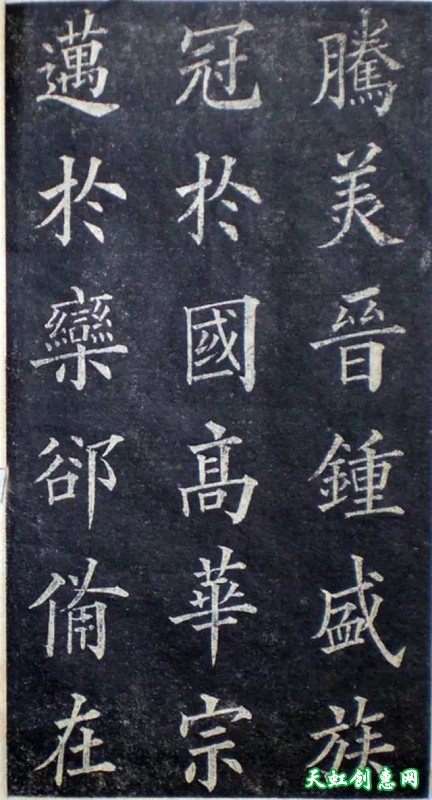 騰美晉鍾盛族
冠於國高華宗
邁於欒郤備在
天虹创惠网